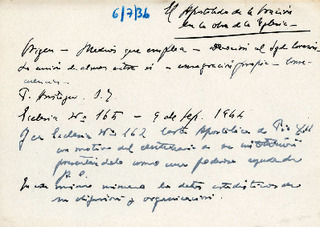 6/7/36
El Apostolado de la Oración
en la obra de la Iglesia -
Origen - Medios que emplea - Devoción al Sgdo Corazón
La unión de almas entre si - consagración propia - 
P. S. J.
Ecclesia Nº 165 - 9 de Sep. 1944
Y en Ecclesia Nº 162 Carta Apostólica de Pío XII
con motivo del centenario de su institución
presentándolo como una poderosa ayuda del
En ese mismo número da datos estadísticos de
su difusión y organización.